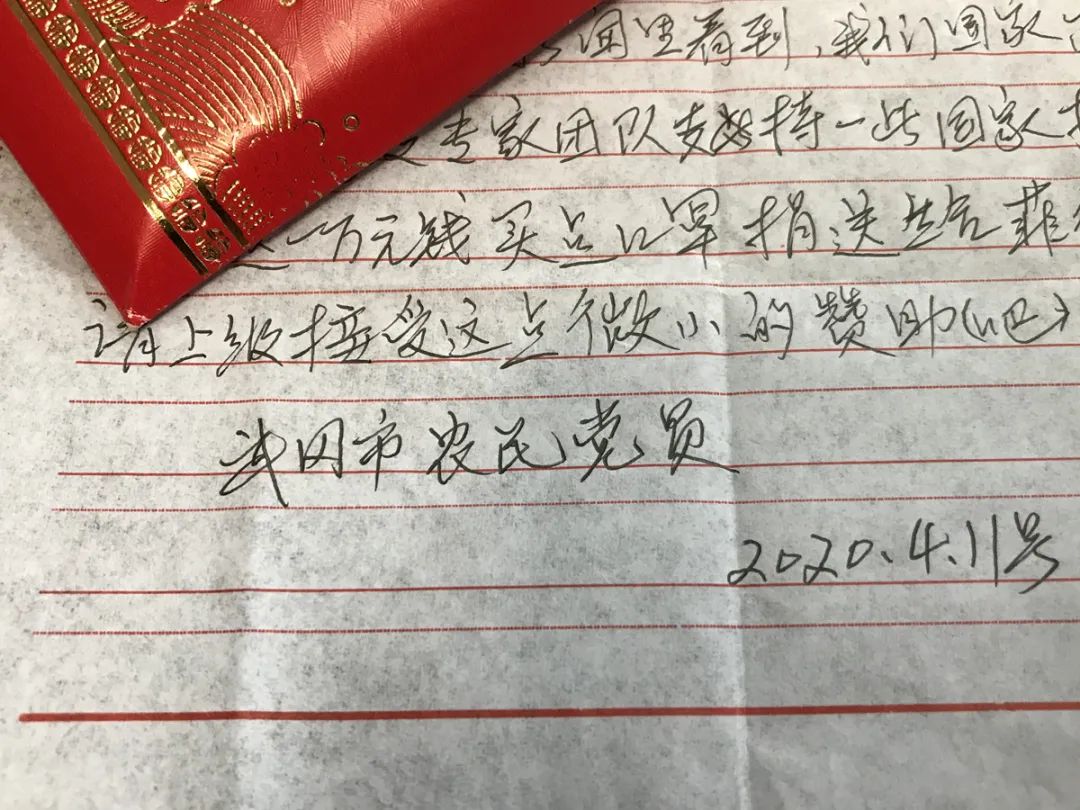 里看到,我们国家
专家团队支持一些国家
一万元钱买点口罩捐送给菲
请上级接受这点微小的赞助(吧)
武冈市农民党员
2020.4.11号